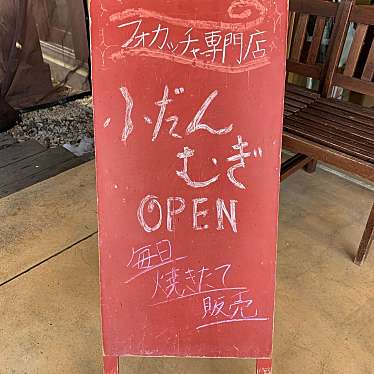 フォカッチャ専門店
ふだん
むぎ
OPEN
毎日
焼きたて
販売